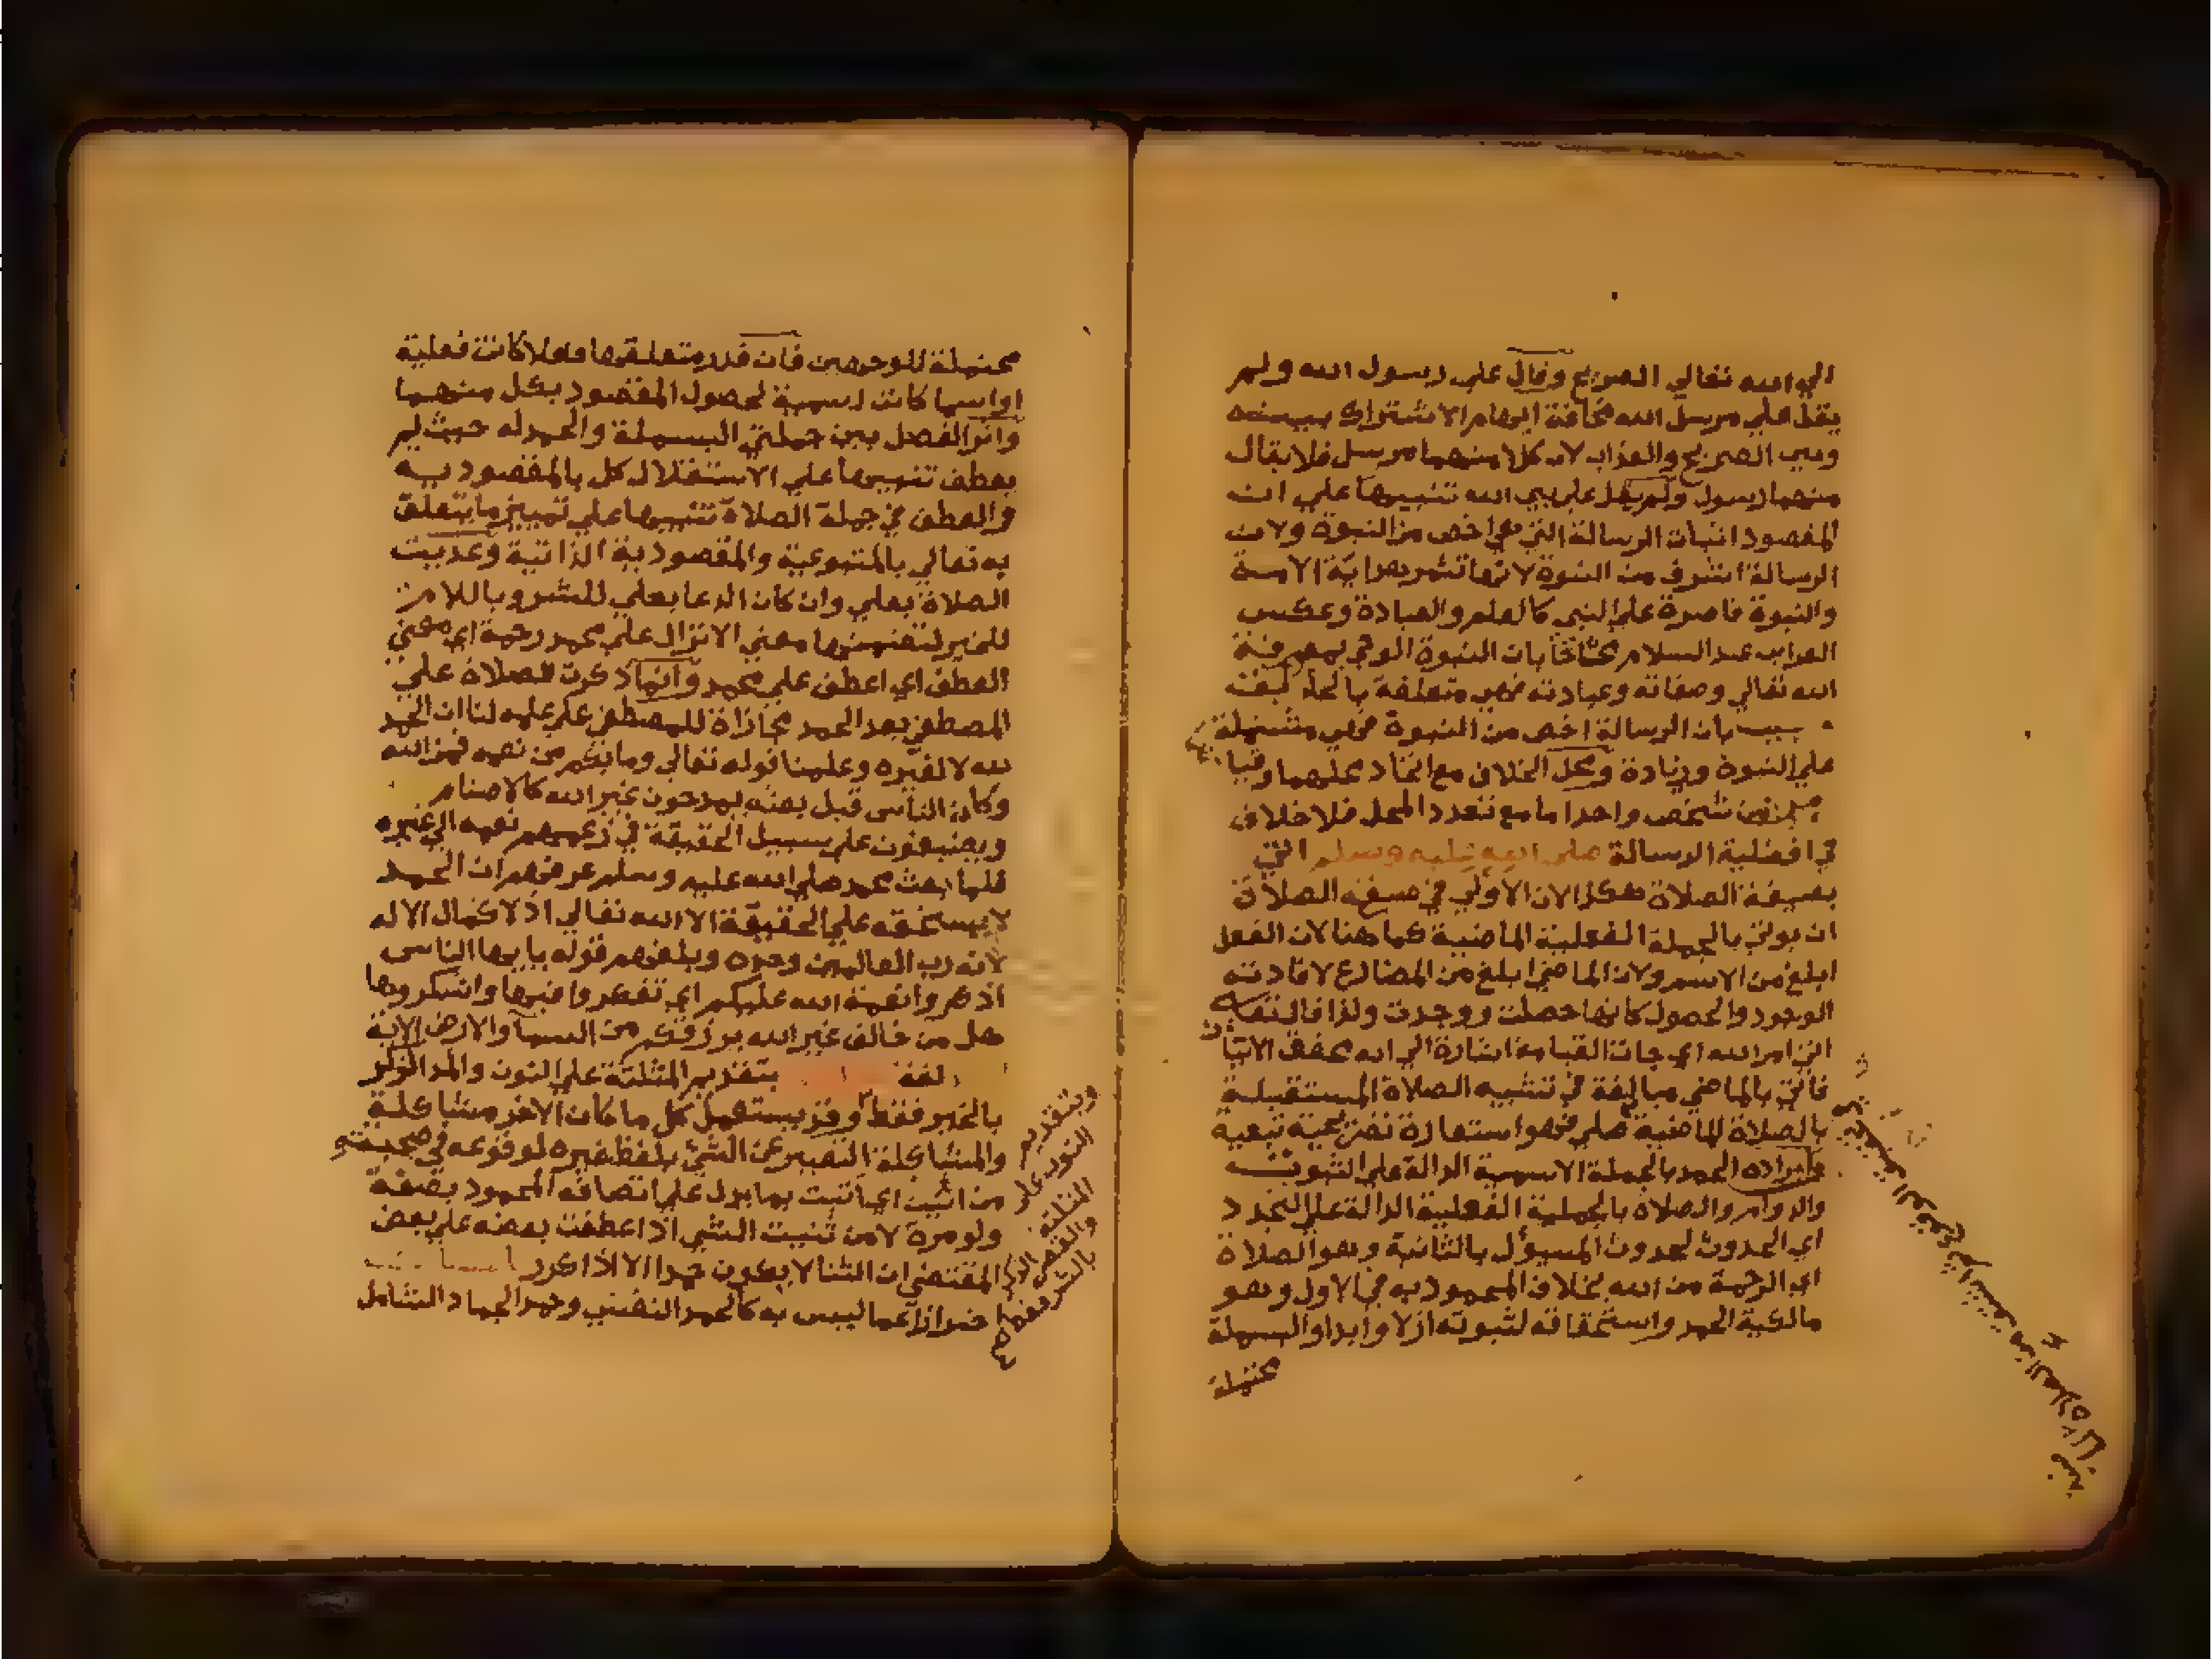 الي الله تعالي الصريح وقال علي رسول الله ولم
يقل علي مرسل الله مخافة ايهام الاشتراك بينه
وبين الصريح والعذاب لان كلا منهما مرسل فلا يقال
منهما رسول ولم يقل علي نبي الله تنبيها علي انه
المقصود اثبات الرسالة التي هي اخص من النبوة ولان
الرسالة اشرف من النبوة لانها تثمر هداية الامة
والنبوة قاصرة علي النبي كالعلم والعبادة وعكس
عبد السلام بان النبوة الوحي بمعرفة
الله تعالي وصفاته وعبادته فهي متعلقة بالحق
بان الرسالة اخص من النبوة فهي مشتملة
علي النبوة وزيادة ومحل الخلاف مع اتحاد محلهما
شخص واحد اما مع تعدد المحل فلا خلاف
في افضلية الرسالة صلي الله عليه وسلم اتي
بصيغة الصلاة هكذا لان الاولي في صيغة الصلاة
ان يوتي بالجملة الفعلية الماضية كما هنا لان الفعل
ابلغ من الاسم ولان الماضي ابلغ من المضارع لافادته
الوجود والحصول كانها حصلت ووجدت ولذا قال تعالي
اتي امر الله اي جات القيامة اشارة الي انه محقق الاتيان
فاتي بالماضي مبالغة في تشبيه الصلاة المستقبلة
بالصلاة الماضية صلي فهو استعارة تصريحية تبعية
وايراده الحمد بالجملة الاسمية الدالة علي الثبوت
والدوام والصلاة بالجملة الفعلية الدالة علي التجدد
اي الحدوث لحدوث المسيؤل بالثانية وهو الصلاة
اي الرحمة من الله بخلاف المحمود به في الاول وهو
مالكية الحمد واستحقاقه لثبوته ازلا وابدا والبسملة
محتملة
محتملة للوجهين فان قدر متعلقها فعلا كانت فعلية
او اسما كانت اسمية لحصول المقصود بكل منهما
واثر الفصل بين جملتي البسملة والحمدله حيث لم
يعطف تنبيها علي الاستقلال كل بالمقصود به
والعطف في جملة الصلاة تنبيها علي تمييز ما يتعلق
به تعالي بالمتبوعية والمقصودية الذاتية وعديت
الصلاة بعلي وان كان الدعا بعلي للشر وباللام
للخير لتضمنها معني الانزال علي محمد رحمة اي معني
العطف اي اعطف علي محمد وانما ذكرت الصلاة علي
المصطفي بعد الحمد مجازاة للمصطفي علي علمه لنا ان الحمد
لله لا لغيره وعلمنا قوله تعالي وما بكم من نعمه فمن الله
وكان الناس قبل بعثه يمدحون غير الله كالاصنام
ويضيفون علي سبيل الحقيقة في زعمهم نعمه الي غيره
فلما بعث محمد صلي الله عليه وسلم عرفهم ان الحمد
لا يستحقه علي الحقيقة الا الله تعالي اذ لا كمال الا له
لانه رب العالمين وحده وبلغهم قوله يا ايها الناس
اذكروا نعمة الله عليكم اي تفكروا فيها واشكروها
هل من خالق غير الله يرزقكم من السما والارض الاية
لغة بتقديم المثلثة علي النون والمد الذكر
بالخير فقط وقد يستعمل كل ما كان الاخر مشاكلة
والمشاكلة التعبير عن الشي بلفظ غيره لوقوعه في صحبته
من اثبت اي اتيت بما يدل علي اتصافه المحمود بصفة
ولو مرة لا من ثنيت الشي اذا عطفت بعضه علي بعض
المقتضي ان الثنا لا يكون حمدا الا اذا كرر
عما ليس به كالحمد النفسي وحمد الجماد الشامل
وبتقديم
النون علي
المثلثة
والقصر